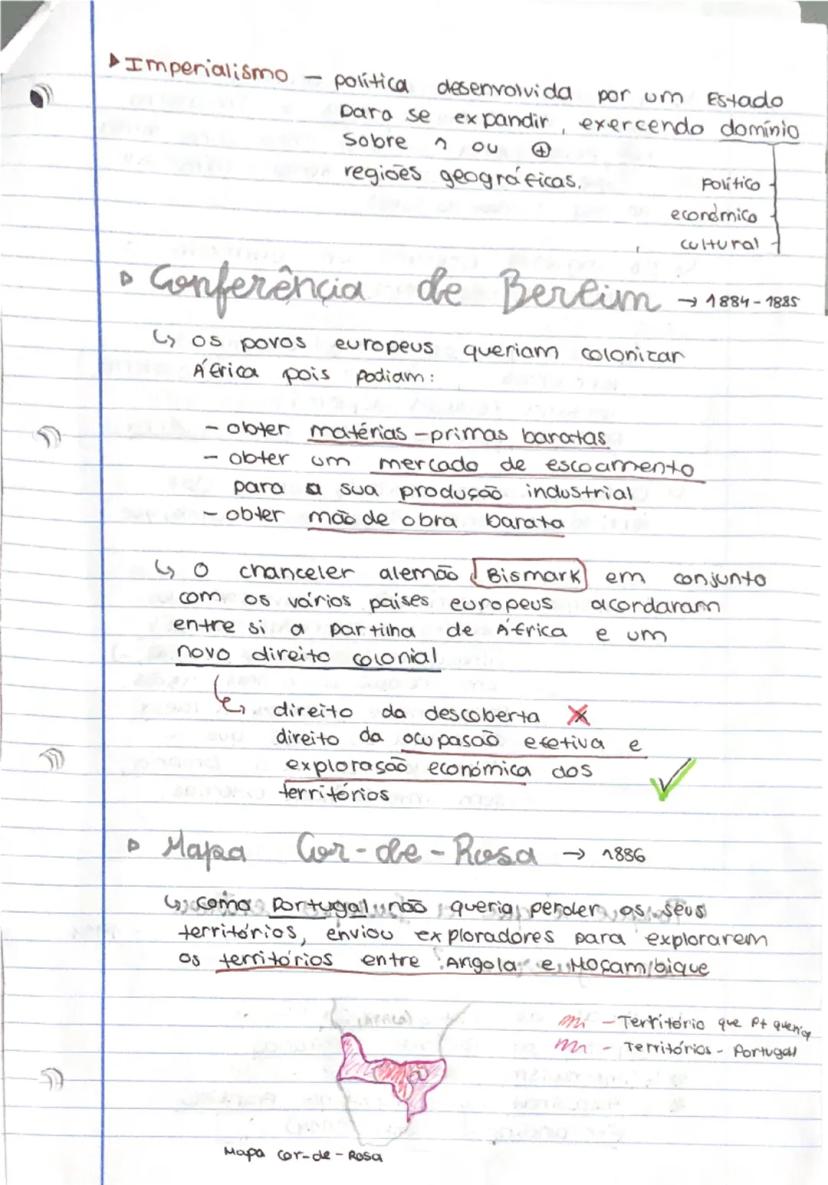 ▶Imperialismo – política desenvolvida por um Estado
para se expandir, exercendo domínio
sobre 1 ou ⊕
regiões geográficas.
político
económico
cultural
▷ Conferência de Berlim → 1884-1885
↳ os povos europeus queriam colonizar
África pois podiam:
- obter matérias-primas baratas
- obter um mercado de escoamento
para a sua produção industrial
- obter mão de obra barata
↳ O chanceler alemão Bismark em conjunto
com os vários países europeus acordaram
entre si a partilha de África e um
novo direito colonial
↳ direito da descoberta ✗
direito da ocupasão efetiva e
explorasão económica dos
territórios ✓
▷ Mapa Cor-de-Rosa → 1886
↳ como Portugal não queria perder os seus
territórios, enviou exploradores para explorarem
os territórios entre Angola e Moçambique
– Território que Pt queria
– Territórios - Portugal
Mapa cor-de-Rosa